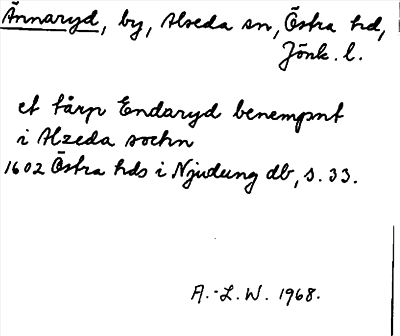 Ännaryd, by, Alseda sn, Östra hd,
Jönk. l.
et tårp Endaryd benempnt
i Alzeda sochn
1602 Östra hds i Njudung db, s. 33.
A.-L.W. 1968.